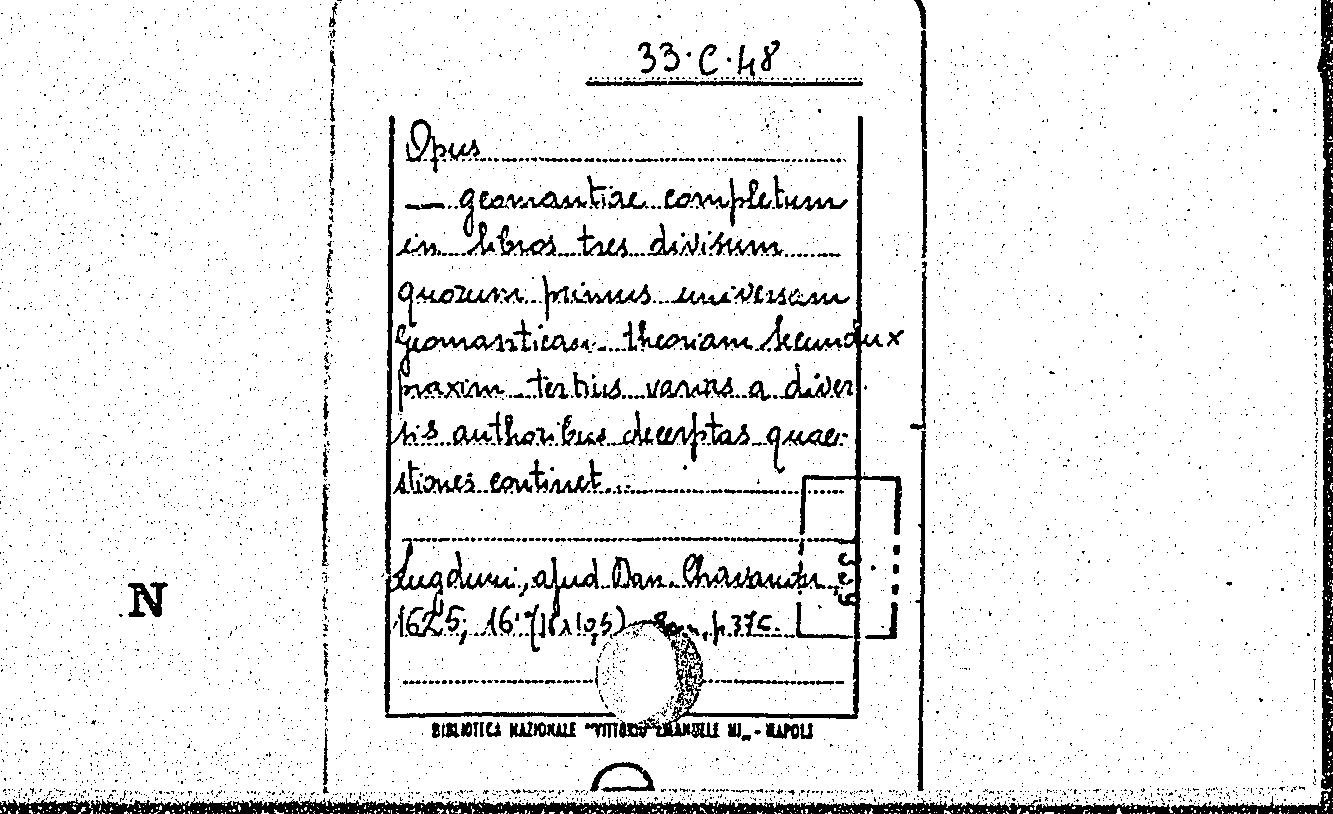 33.C.48
Opus
— geomantiae completum
in libros tres divisum
quorum primus universam
geomanticam theoriam secundux
praxim tertius varias a diver-
sis authoribus decerptas quae-
stiones continet...
Lugduni, apud Dan. Chavanum
1625; 16° p. 376.
N
BIBLIOTECA NAZIONALE "VITTORIO EMANUELE III" - NAPOLI